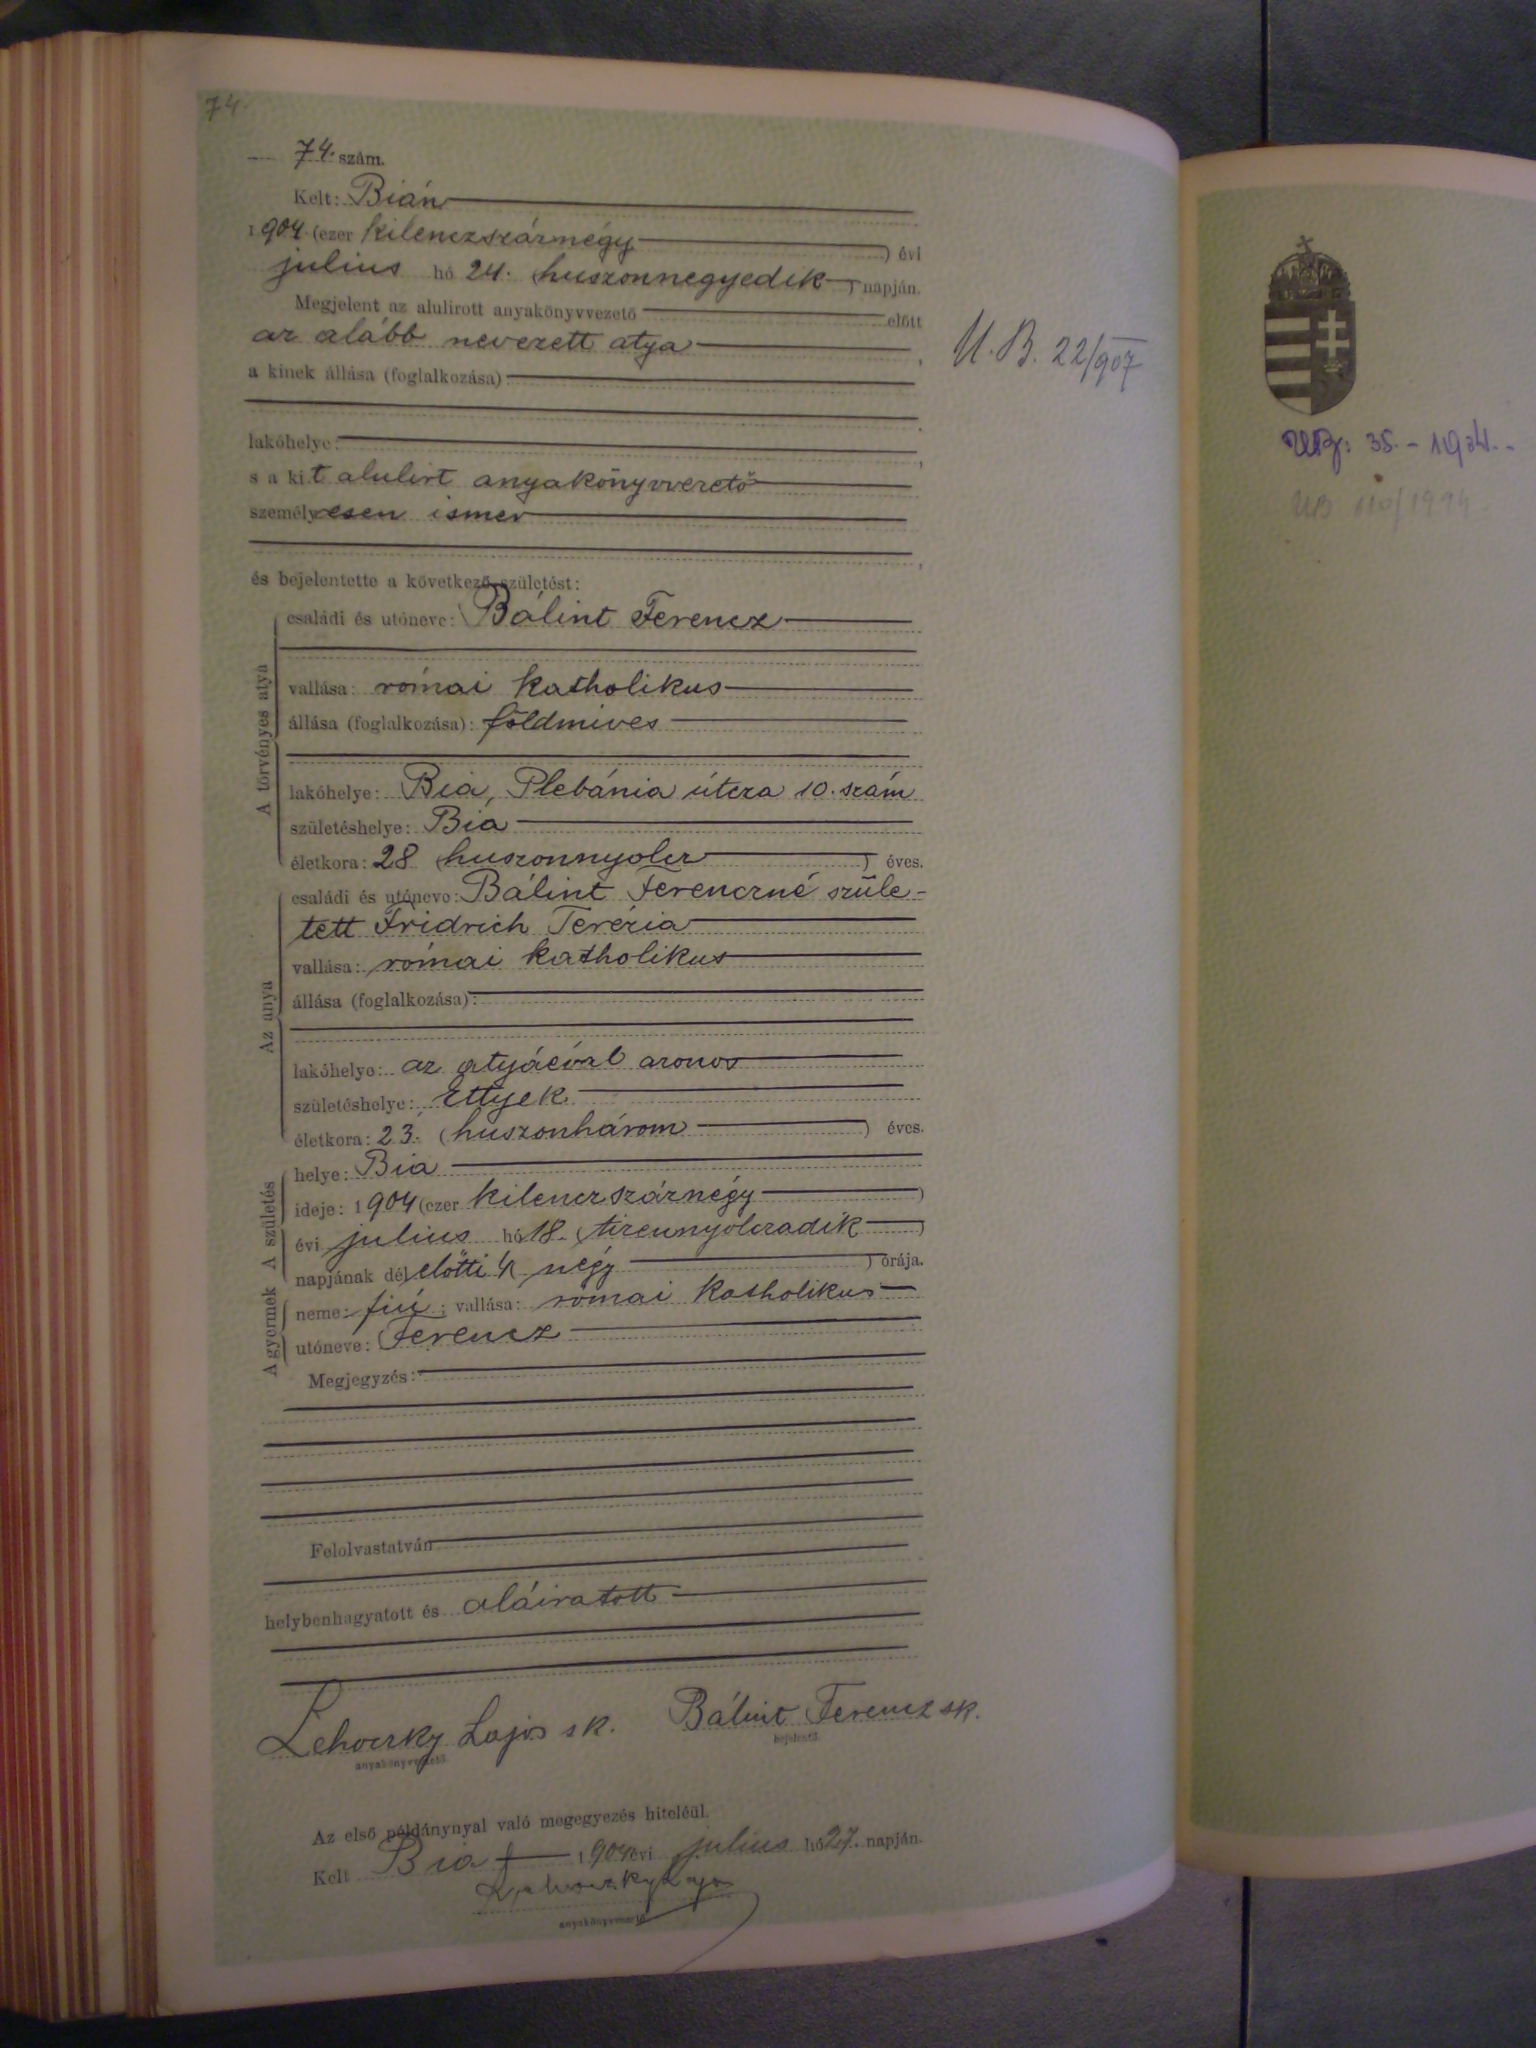 74.
74. szám.
Kelt: Bián
1904. (ezer kilenczszáznégy) évi
julius hó 24. (huszonnegyedik) napján.
Megjelent az alulirott anyakönyvvezető előtt
az alább nevezett atya,
a kinek állása (foglalkozása):
lakóhelye:
s a kit alulirt anyakönyvvezető
személyesen ismer
és bejelentette a következő születést:
A törvényes atya
családi és utóneve: Bálint Ferencz
vallása: római katholikus
állása (foglalkozása): földmives
lakóhelye: Bia, Plebánia útcza 10. szám
születéshelye: Bia
életkora: 28 (huszonnyolcz) éves.
Az anya
családi és utóneve: Bálint Ferenczné szüle-
tett Fridrich Terézia
vallása: római katholikus
állása (foglalkozása):
lakóhelye: az atyáéval azonos
születéshelye: Ettyek
életkora: 23. (huszonhárom) éves.
A születés
helye: Bia
ideje: 1904 (ezer kilenczszáznégy)
évi julius hó 18. (tizennyolczadik)
napjának délelőtti 4 (négy) órája.
A gyermek
neme: fiú; vallása: római katholikus
utóneve: Ferencz
Megjegyzés:
Felolvastatván
helybenhagyatott és aláiratott
Lehoczky Lajos sk. Bálint Ferencz sk.
anyakönyvvezető. bejelentő.
Az első példánynyal való megegyezés hiteléül.
Kelt Bia 1904 évi julius hó 27. napján.
Lehoczky Lajos
anyakönyvvezető.
U.B. 22/907
35.-1934.
UB 110/1994